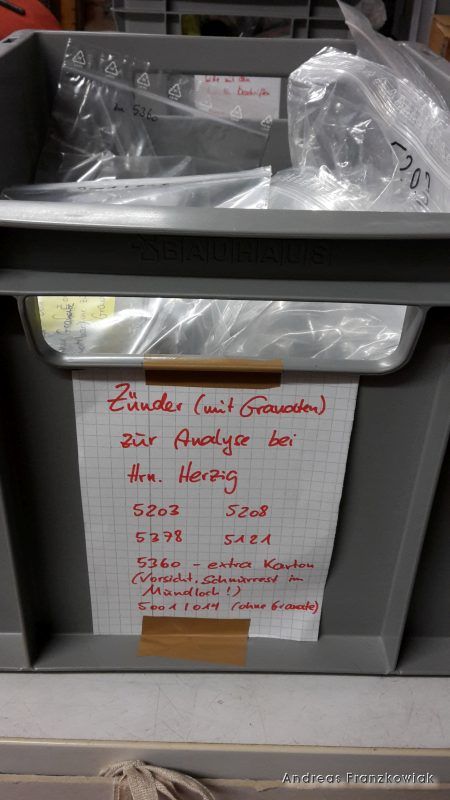 5360
5203
BAUHAUS
Zünder (mit Granaten)
zur Analyse bei
Hrn. Herzig
5203 5208
5378 5121
5360 - extra Karton
(Vorsicht, Schnurrest im
Mundloch!)
5001 1014 (ohne Granate)
Andreas Franzkowiak